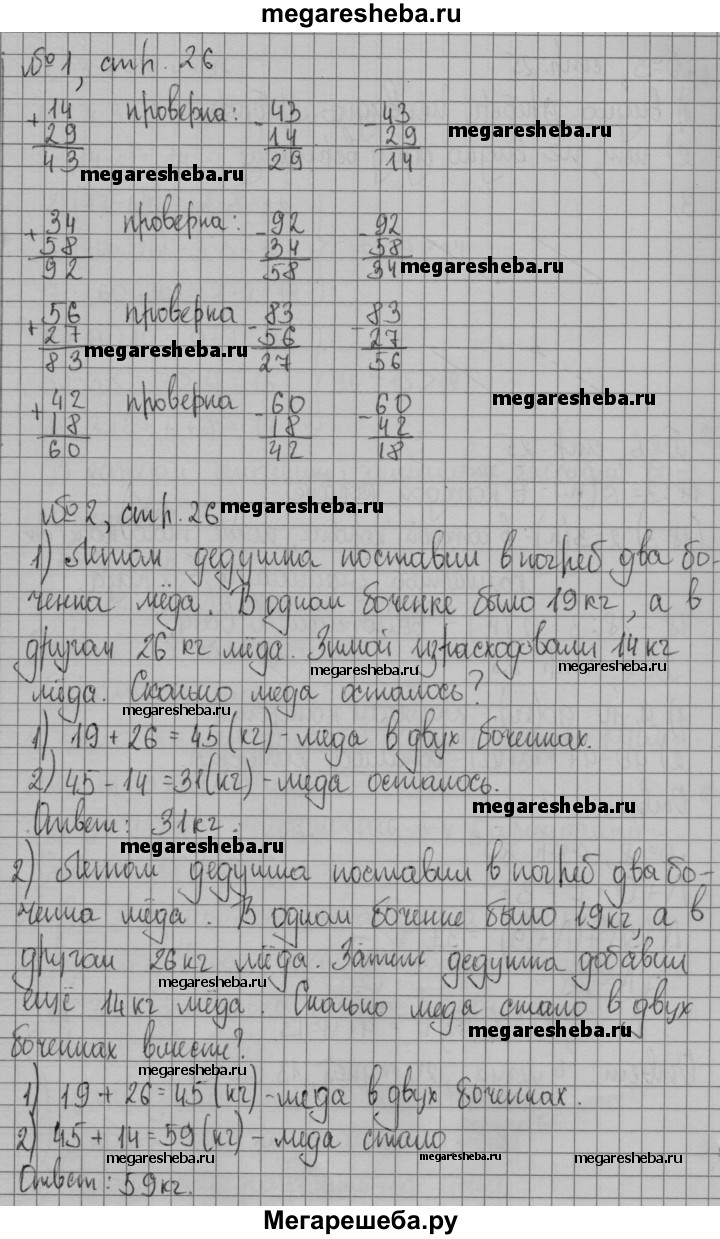 megaresheba.ru
№1, стр. 26
+ 14 проверка: - 43 - 43
29 14 29 megaresheba.ru
43 29 14
megaresheba.ru
+ 34 проверка: - 92 - 92
58 34 58
92 58 34 megaresheba.ru
+ 56 проверка - 83 - 83
27 56 27
83 megaresheba.ru 27 56
+ 42 проверка - 60 - 60 megaresheba.ru
18 18 42
60 42 18
№2, стр. 26 megaresheba.ru
1) Летом дедушка поставил в погреб два бо-
ченка мёда. В одном боченке было 19 кг, а в
другом 26 кг мёда. Зимой израсходовали 14 кг
megaresheba.ru megaresheba.ru
мёда. Сколько меда осталось?
megaresheba.ru
1) 19 + 26 = 45 (кг) - меда в двух боченках.
2) 45 - 14 = 31 (кг) - меда осталось.
megaresheba.ru
Ответ: 31 кг.
megaresheba.ru
2) Летом дедушка поставил в погреб два бо-
ченка мёда. В одном боченке было 19 кг, а в
другом 26 кг мёда. Затем дедушка добавил
megaresheba.ru
ещё 14 кг мёда. Сколько меда стало в двух
megaresheba.ru
боченках вместе?
megaresheba.ru
1) 19 + 26 = 45 (кг) - меда в двух боченках.
2) 45 + 14 = 59 (кг) - меда стало
megaresheba.ru megaresheba.ru megaresheba.ru
Ответ: 59 кг.
Мегарешеба.ру